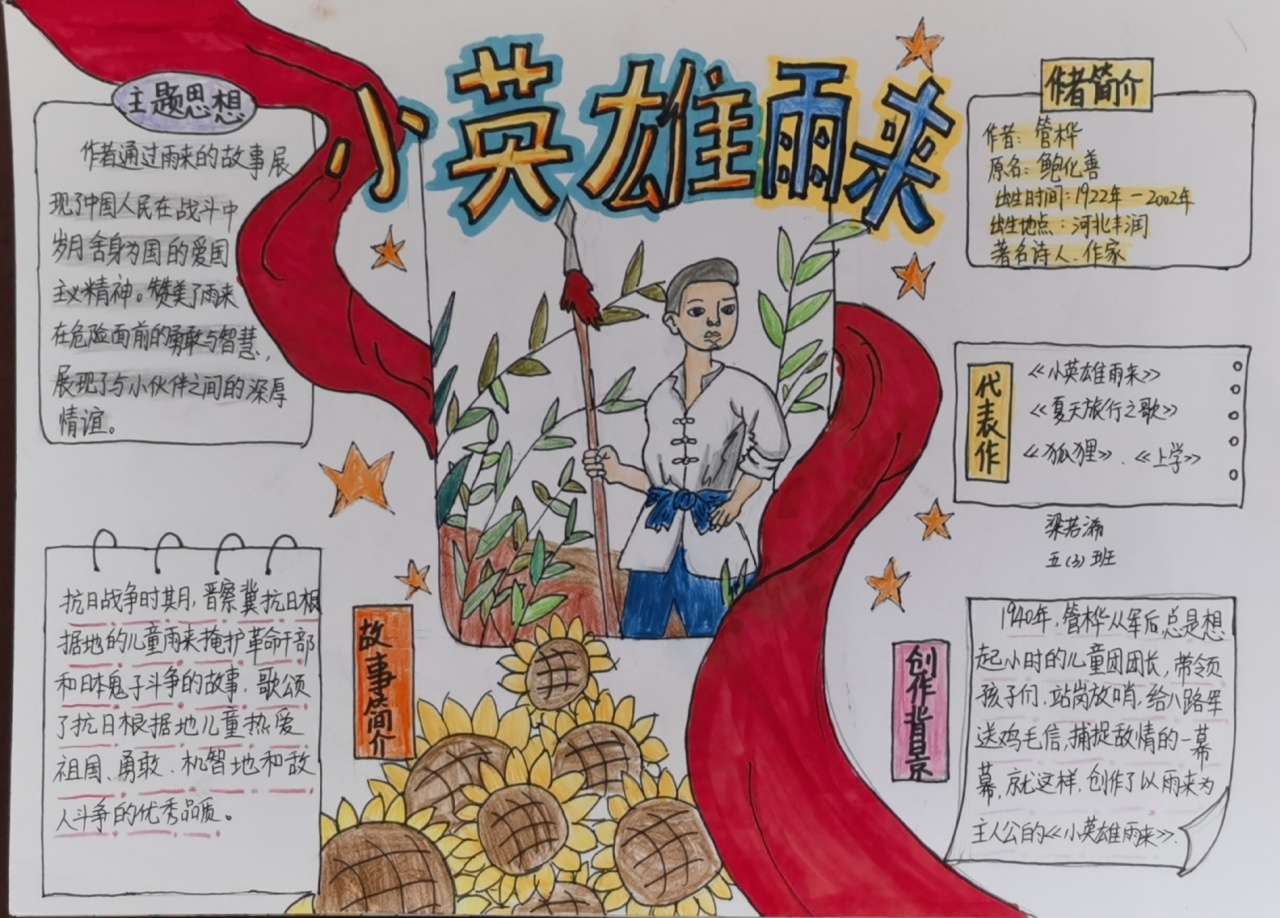 小英雄雨来
主题思想
作者通过雨来的故事展
现了中国人民在战斗中
岁月舍身为国的爱国
主义精神。赞美了雨来
在危险面前的勇敢与智慧,
展现了与小伙伴之间的深厚
情谊。
作者简介
作者:管桦
原名:鲍化善
出生时间:1922年—2002年
出生地点:河北丰润
著名诗人、作家
代表作
《小英雄雨来》
《夏天旅行之歌》
《狐狸》、《上学》
梁若浠
五(3)班
故事简介
抗日战争时其月,晋察冀抗日根
据地的儿童雨来掩护革命干部
和日本鬼子斗争的故事,歌颂
了抗日根据地儿童热爱
祖国、勇敢、机智地和敌
人斗争的优秀品质。
创作背景
1940年,管桦从军后,总是想
起小时的儿童团团长,带领
孩子们,站岗放哨,给八路军
送鸡毛信,捕捉敌情的一幕
幕,就这样,创作了以雨来为
主人公的《小英雄雨来》.